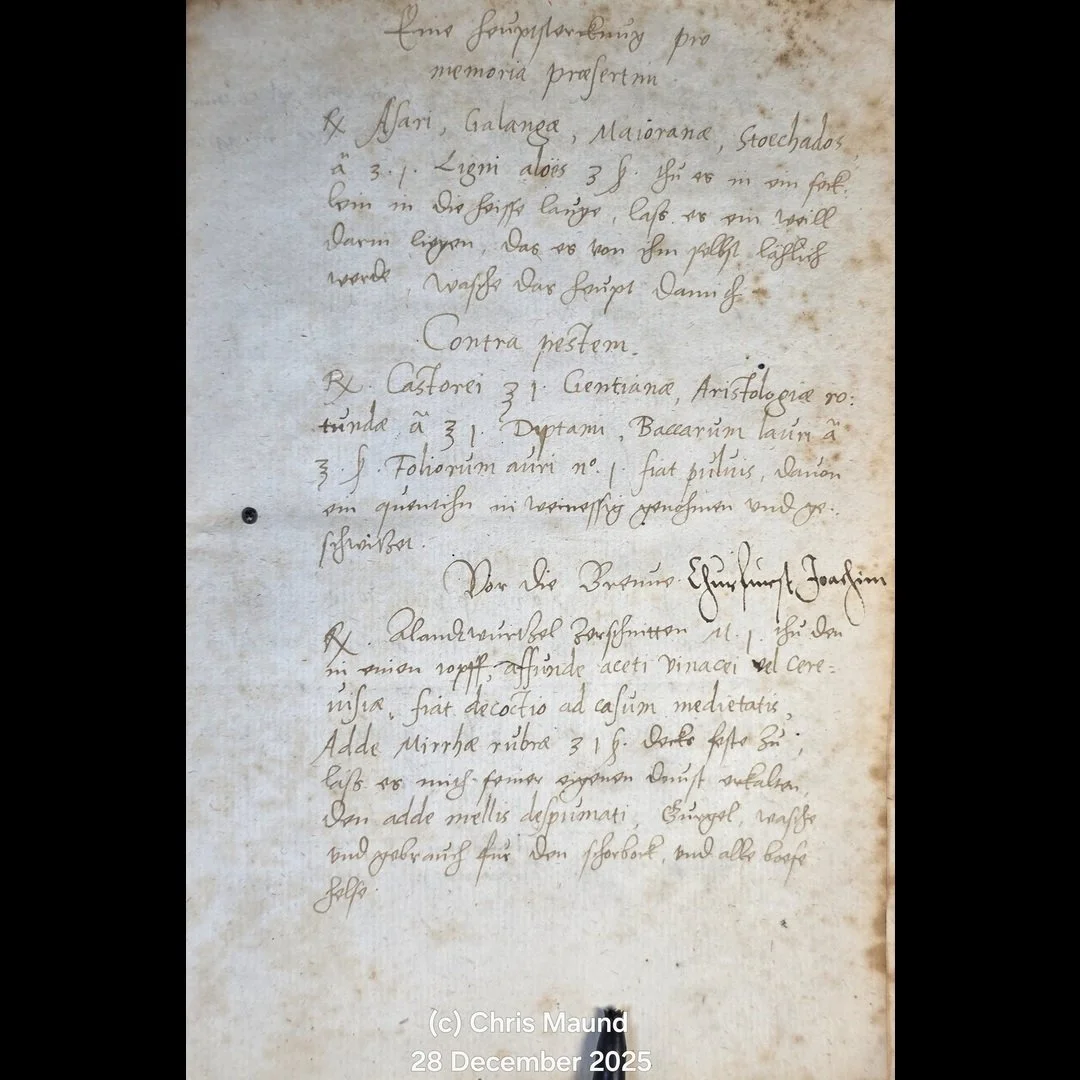 Eine heuptsterckung pro
memoria præsertim
℞ Asari, Galangæ, Maioranæ, Stoechados,
ā ʒ. j. Ligni aloës ʒ ß. thu es in ein seck-
lein in die heisse lauge, lass es ein weill
darin liegen, das es von ihm selbst
werde, wasche das heupt damith
Contra pestem.
℞. Castorei ʒ j. Gentianæ, Aristologiæ ro:
tundæ, ā ʒ j. Diptami, Baccarum lauri ā
ʒ. ß. Foliorum auri n°. j. fiat puluis, davon
ein quentihn in weinessig genohmen und ge-
schwitzet.
Vor die Breune Churfürst Joachim
℞. Alandtwurtzel zerschnitten M. j. thu den
in einen topff, affunde aceti vinacei vel cere-
uisiæ, fiat decoctio ad casum medietatis,
Adde Mirrhæ rubræ ʒ j ß. decks feste zu,
lass es mith seiner eigenen dunst erkalten,
den adde mellis despumati, Gurgel, wasche
und gebrauch fur den schorbock, und alle boese
helse.
(c) Chris Maund
28 December 2025